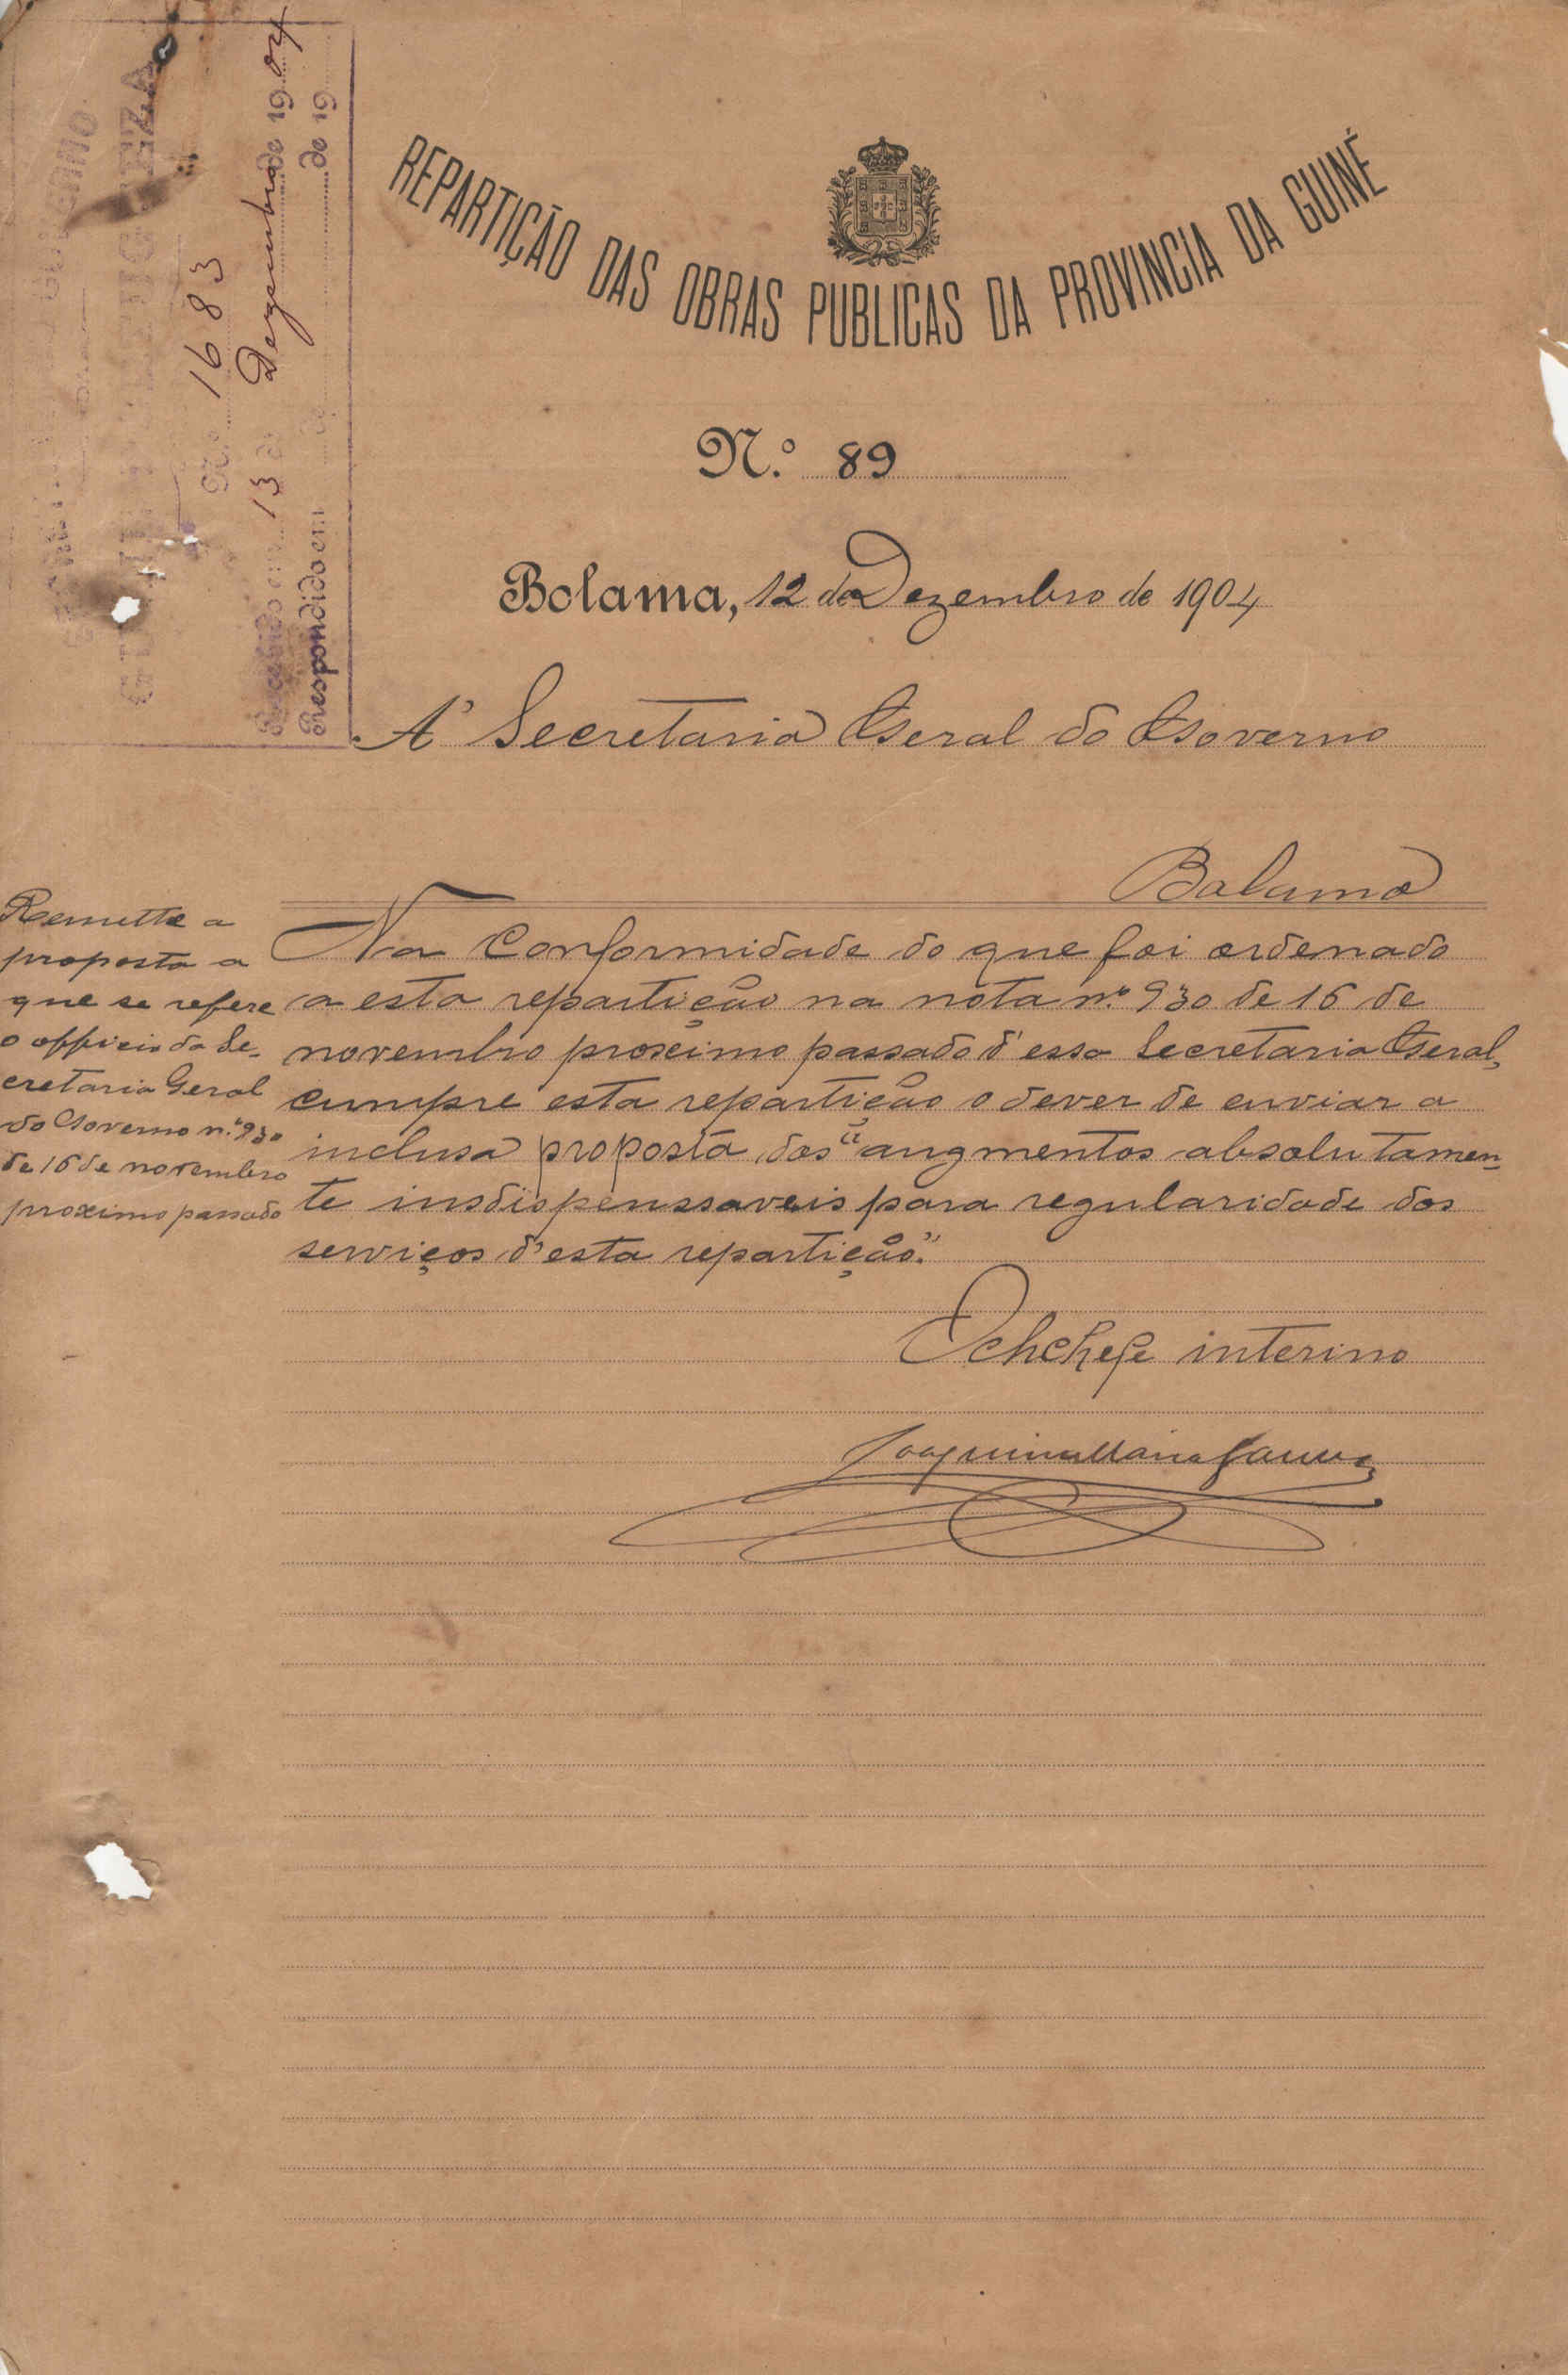 REPARTIÇÃO DAS OBRAS PUBLICAS DA PROVINCIA DA GUINÉ
N.º 89
Bolama, 12 de Dezembro de 1904
Á Secretaria Geral do Governo
Bolama
Na Conformidade do que foi ordenado
a esta repartição na nota n.º 930 de 16 de
novembro proximo passado d'essa Secretaria Geral,
cumpre esta repartição o dever de enviar a
inclusa proposta dos "augmentos absolutamen-
te insdispenssaveis para regularidade dos
serviços d'esta repartição."
O chefe interino
Joaquim Maria
Remette a
proposta a
que se refere
o officio da Se-
cretaria Geral
do Governo n.º 930
de 16 de novembro
proximo passado
N.º 1683
Recebido em 13 de Dezembro de 1904
Respondido em de de 19